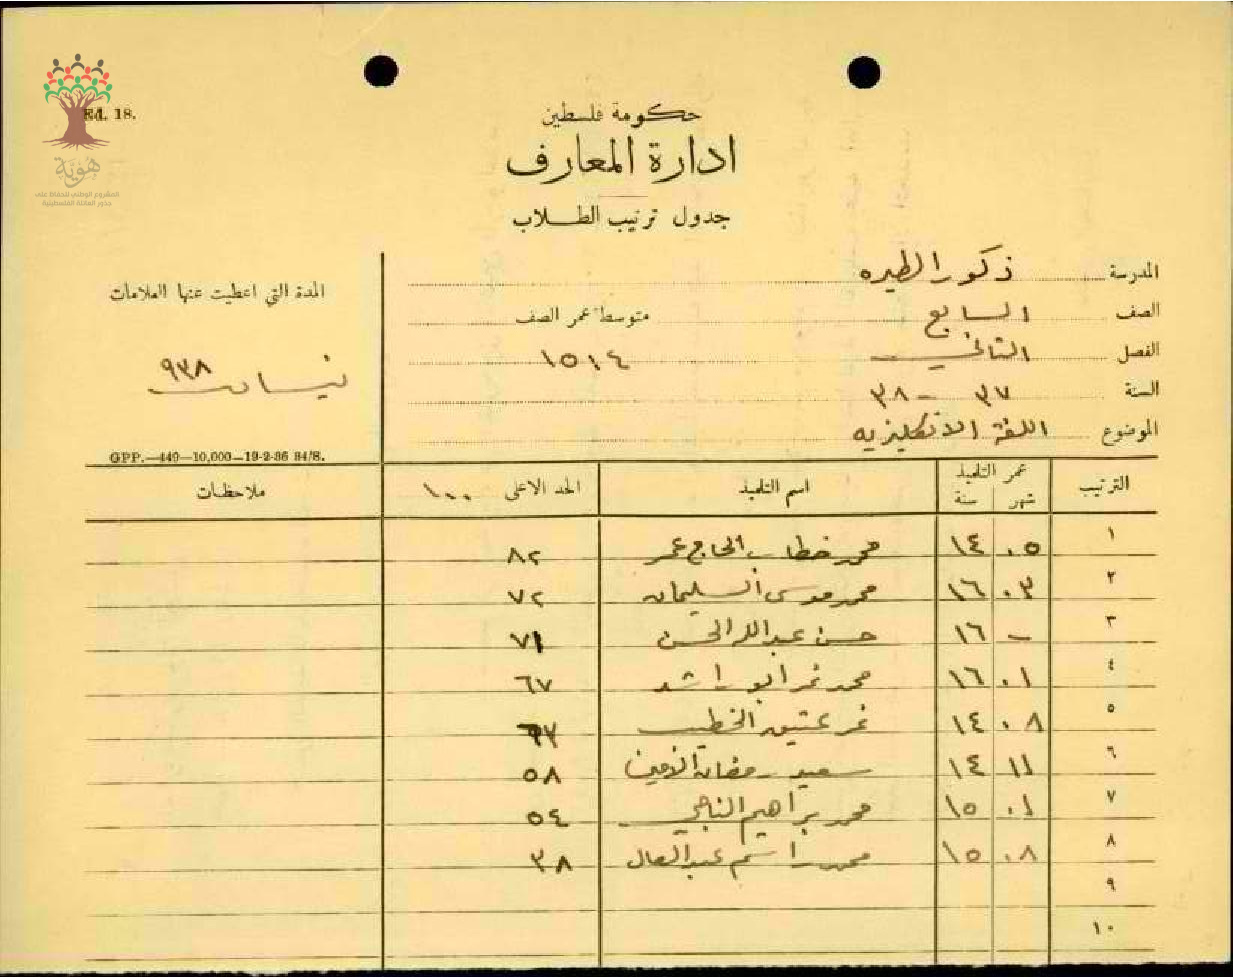 Ed. 18.
هوية
المشروع الوطني للحفاظ على
جذور العائلة الفلسطينية
حكومة فلسطين
ادارة المعارف
جدول ترتيب الطلاب
المدرسة ذكور الطيره
الصف السابع متوسط عمر الصف
الفصل الثاني ١٥١٤
السنة ٣٧ – ٣٨
الموضوع اللغة الانكليزيه
المدة التي اعطيت عنها العلامات
نيسان ٩٣٨
GPP.—449—10,000—19-2-36 34/8.
الترتيب عمر التلميذ شهر سنة اسم التلميذ الحد الاعلى ١٠٠ ملاحظات
١ ٠٥ ١٤ محمد خطاب الحاج عمر ٨٢
٢ ٠٣ ١٦ محمد موسى السليمان ٧٢
٣ – ١٦ حسن عبدالله الحسن ٧١
٤ ٠١ ١٦ محمد نمر ابو راشد ٦٧
٥ ٠٨ ١٤ نمر عتيق الخطيب ٦٣
٦ ١١ ١٤ سعيد رمضان الامين ٥٨
٧ ٠١ ١٥ محمد براهيم الناجي ٥٤
٨ ٠٨ ١٥ محمد راسم عبدالعال ٣٨
٩
١٠